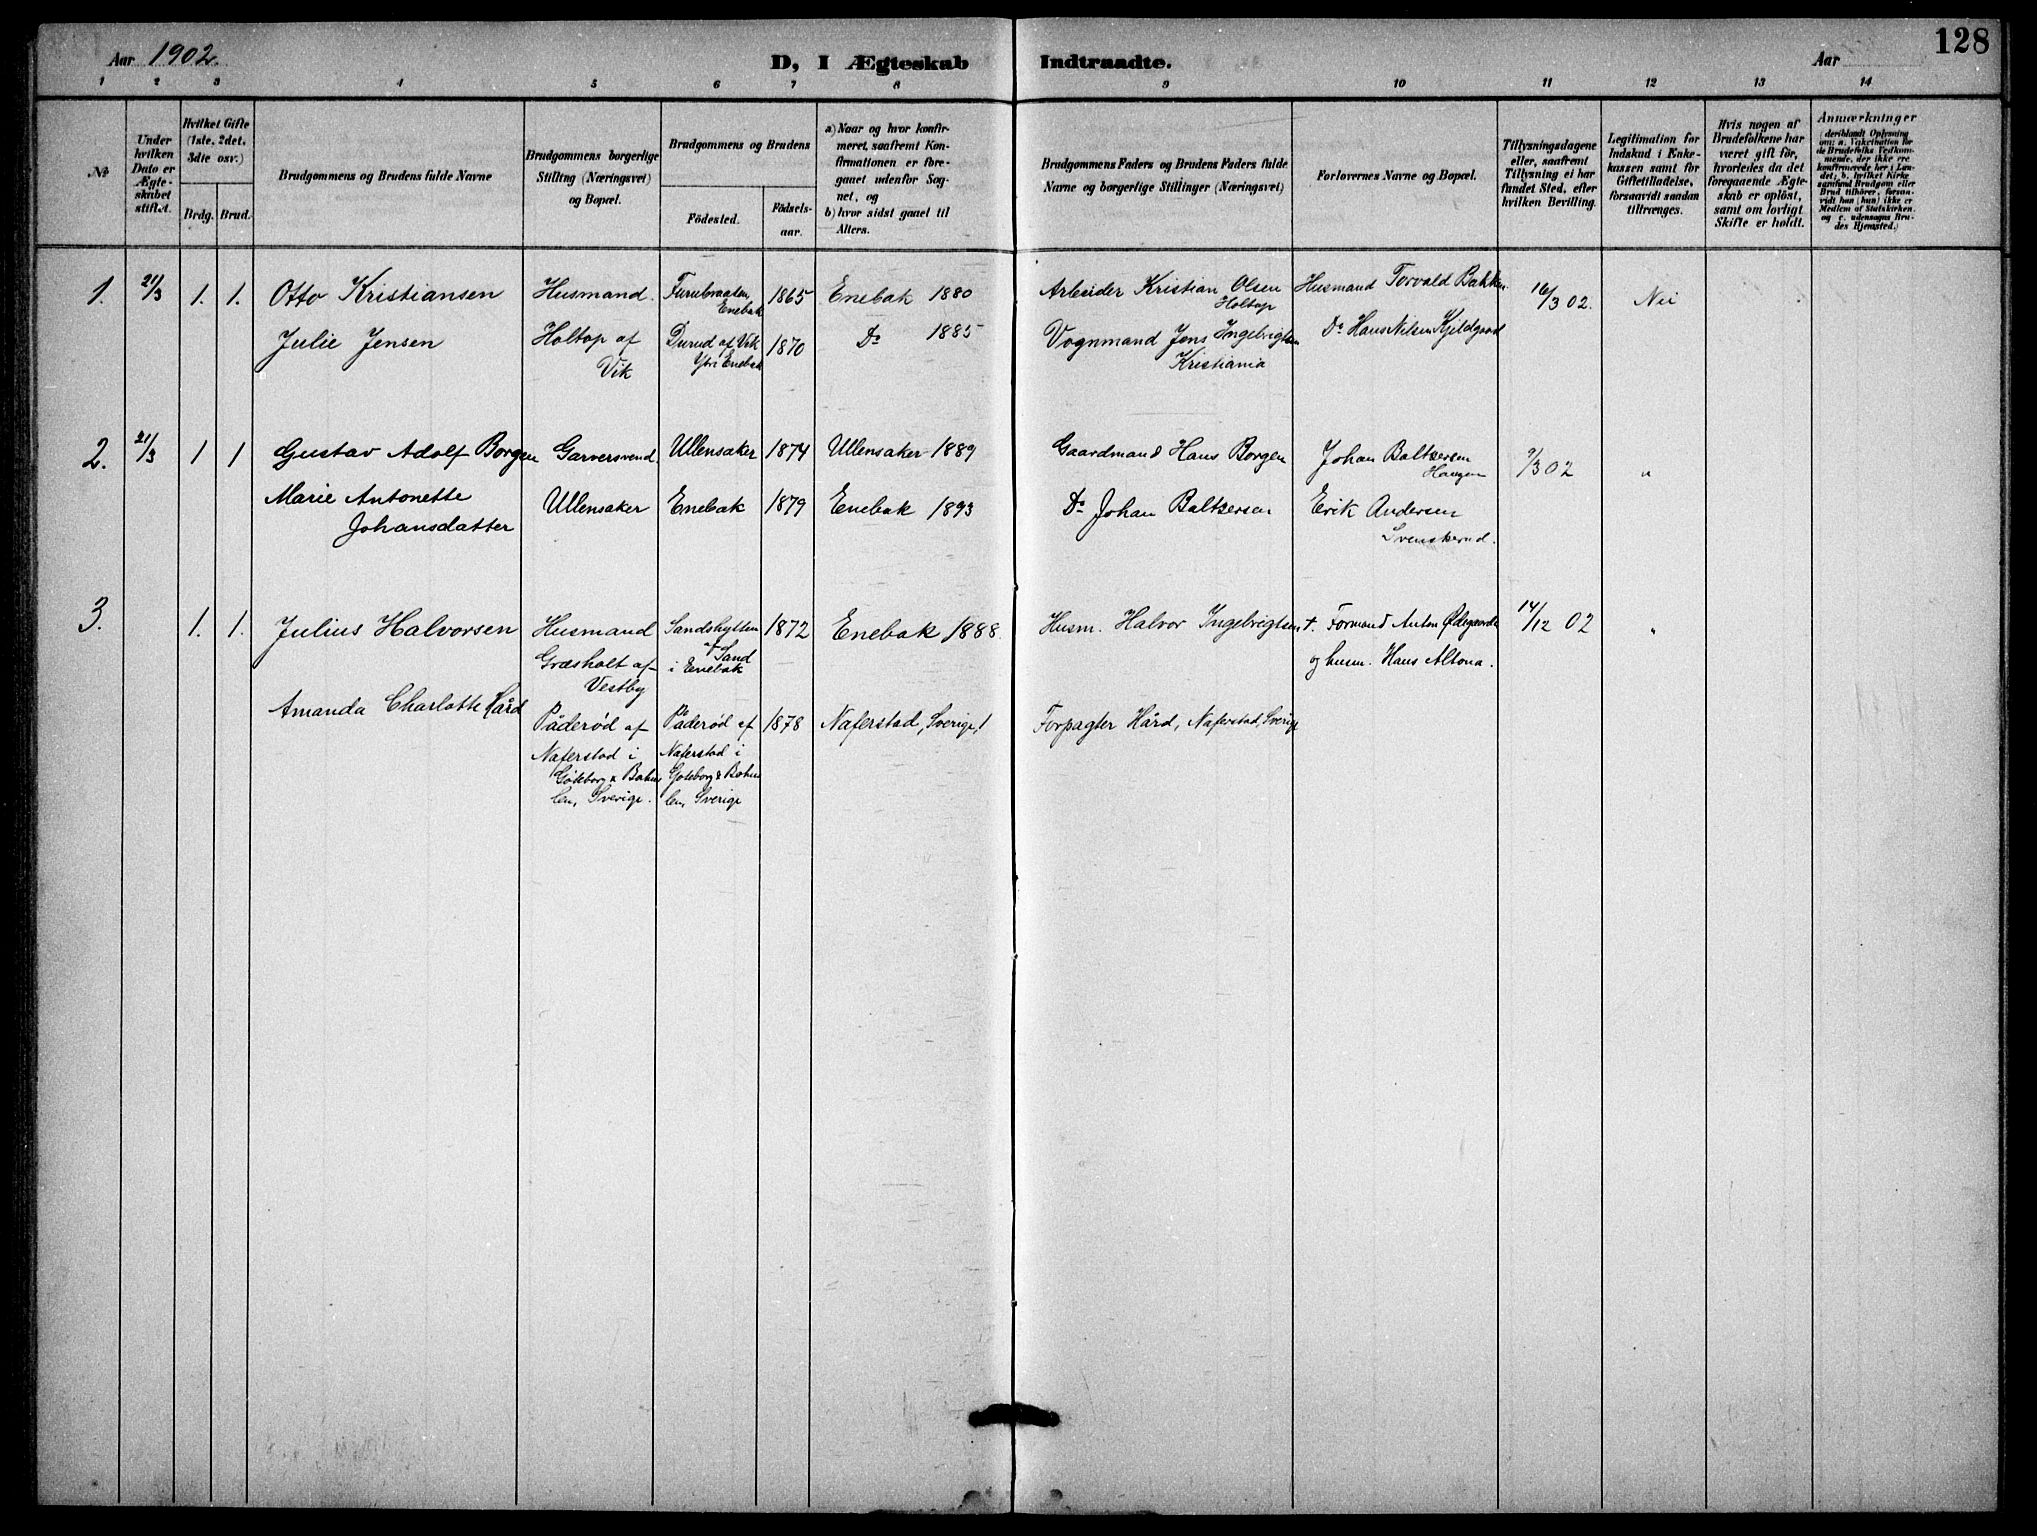 Aar 1902.
D, I Ægteskab Indtraadte.
Aar
128
1 2 3 4 5 6 7 8 9 10 11 12 13 14
№
Under hvilken Dato er Ægteskabet stiftet.
Hvilket Gifte (1ste, 2det, 3die osv.)
Brdg. Brud.
Brudgommens og Brudens fulde Navne
Brudgommens borgerlige Stilling (Næringsvei) og Bopæl.
Brudgommens og Brudens
Födested.
Födselsaar.
a) Naar og hvor konfirmeret, saafremt Konfirmationen er foregaaet udenfor Sognet, og
b) hvor sidst gaaet til Alters.
Brudgommens Faders og Brudens Faders fulde Navne og borgerlige Stillinger (Næringsvei)
Forlovernes Navne og Bopæl.
Tillysningsdagene eller, saafremt Tillysning ei har fundet Sted, efter hvilken Bevilling.
Legitimation for Indskud i Enkekassen samt for Giftetilladelse, forsaavidt saadan tiltrænges.
Hvis nogen af Brudefolkene har været gift för, hvorledes da det foregaaende Ægteskab er oplöst, samt om lovligt Skifte er holdt.
Anmærkninger
(deriblandt Oplysning om: a. Vakcination for de Brudefolks Vedkommende, der ikke ere konfirmerede her i Landet; b. hvilket Kirkesamfund Brudgom eller Brud tilhörer, forsaavidt han (hun) ikke er Medlem af Statskirken, og c. udensogns Brudes Hjemsted.)
1. 21/3 1. 1. Otto Kristiansen Husmand. Furubraaten, Enebak 1865 Enebak 1880 Arbeider Kristian Olsen Holtop Husmand Torvald Bakken 16/3 02. Nei
Julie Jensen Holtop af Vik Durud af Vik Ytri Enebak 1870 Do 1885 Vognmand Jens Ingebrigtsen Kristiania Do Hans Nilsen Kjildgaard
2. 21/3 1 1 Gustav Adolf Borgen Garversvend. Ullensaker 1874 Ullensaker 1889 Gaardmand Hans Borgen Johan Baltzersen Haugen 9/3 02 "
Marie Antonette Johansdatter Ullensaker Enebak 1879 Enebak 1893 Do Johan Baltzersen Erik Andersen Svenskerud.
3. 1. 1. Julius Halvorsen Husmand Græsholt af Vestby Sandshytten af Sand i Enebak 1872 Enebak 1888. Husm. Halvor Ingebrigtsen †. Formand Anton Ødegaard og husm. Hans Altona. 14/12 02 "
Amanda Charlotte Hård Påderød af Naferstad i Göteborg & Bohus len, Sverige. Påderød af Naferstad i Göteborg & Bohus len, Sverige 1878 Naferstad, Sverige, Forpagter Hård, Naferstad, Sverige